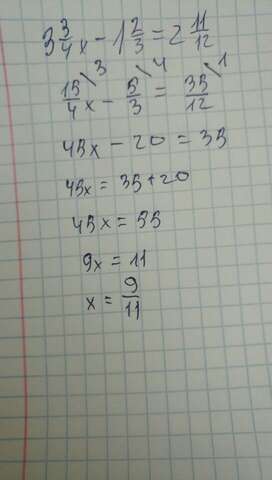 3 3/4 x - 1 2/3 = 2 11/12
15/4 \3 x - 5/3 \4 = 35/12 \1
45x - 20 = 35
45x = 35 + 20
45x = 55
9x = 11
x = 9/11